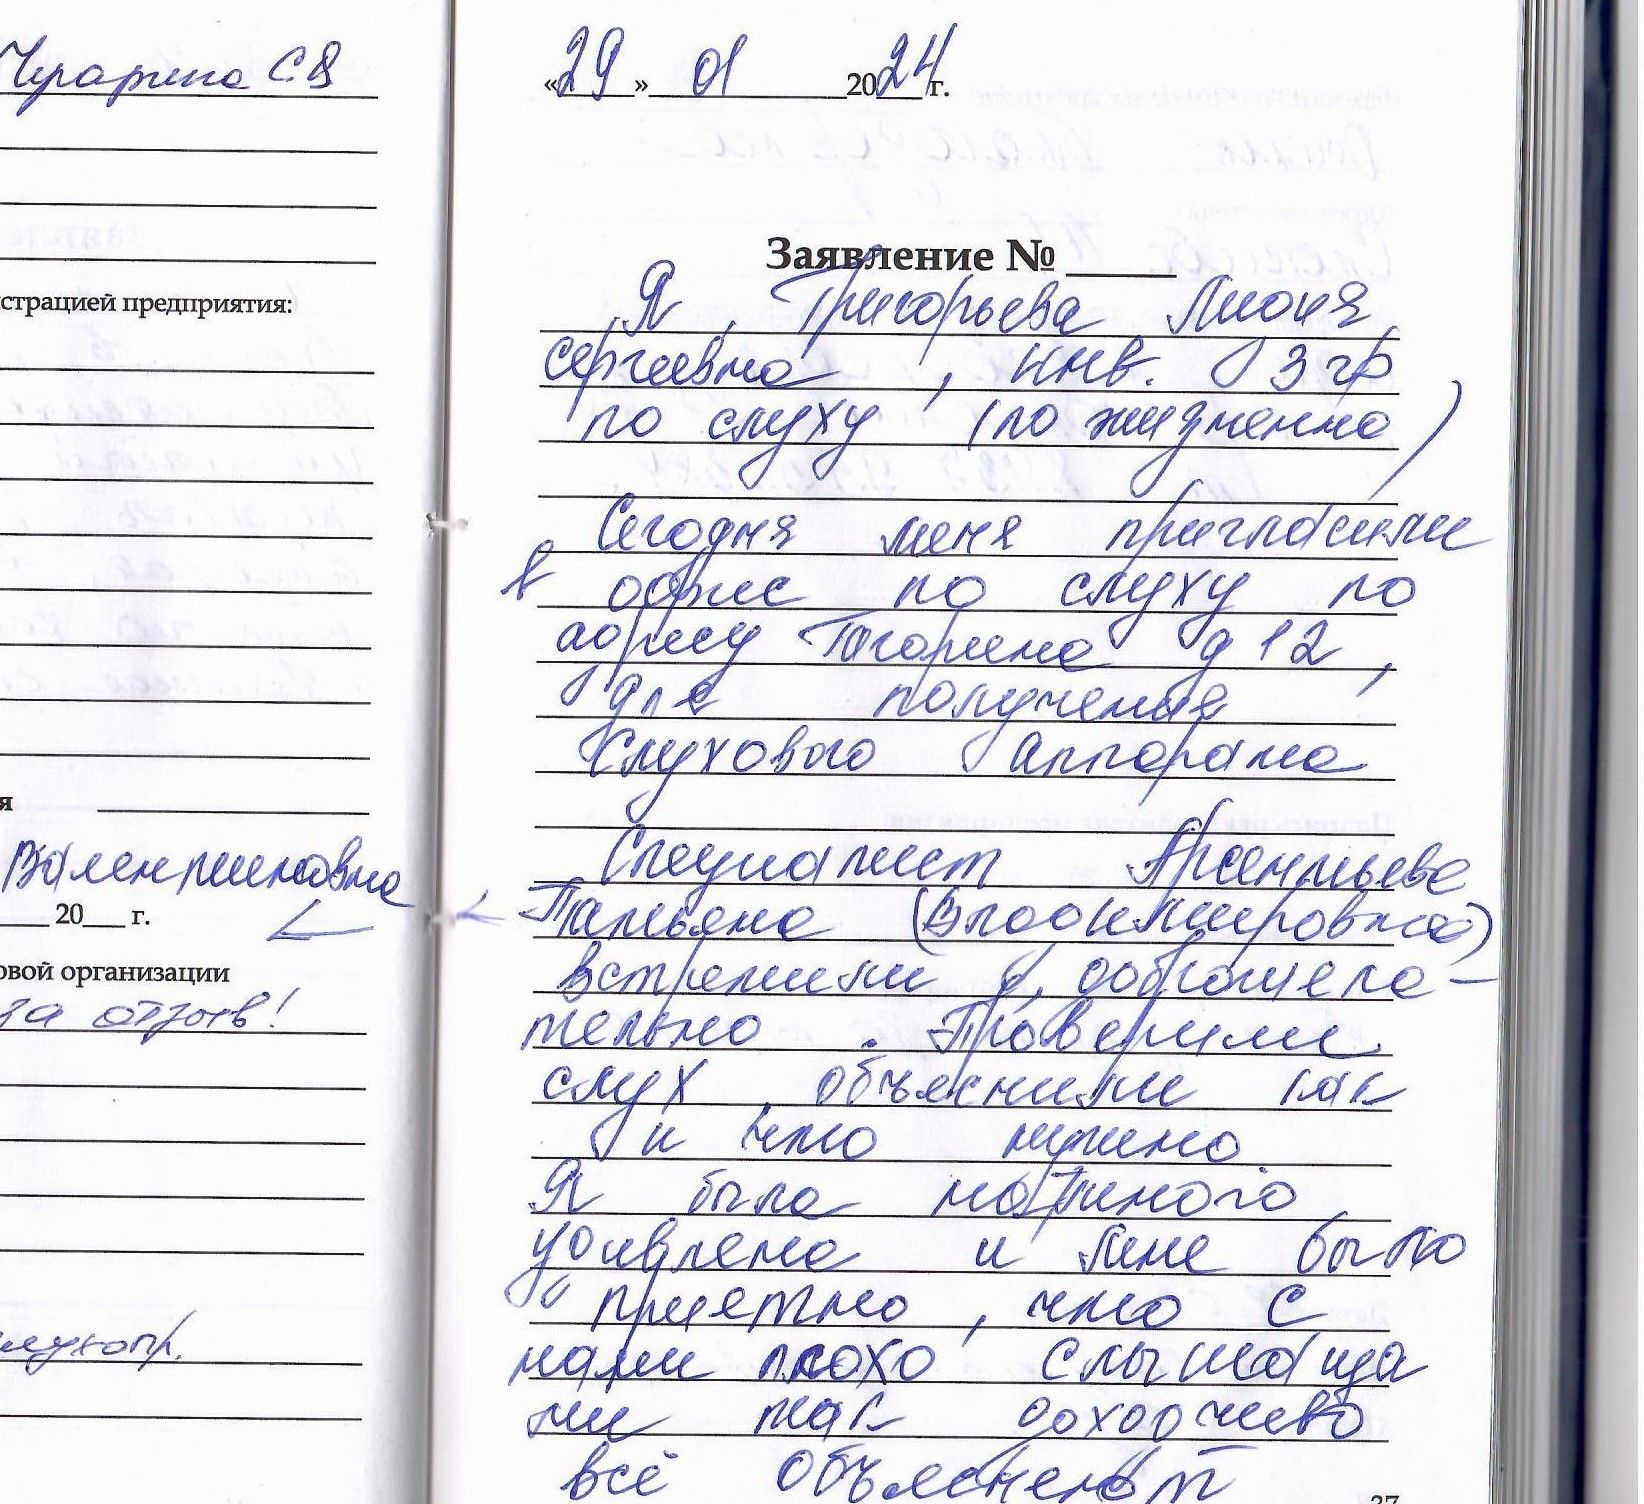 С.В
страцией предприятия:
я
Валентиновна
20 г.
овой организации
за отзыв!
слухопр.
«29» 01 2024 г.
Заявление №
Я, Григорьева Лидия
Сергеевна, инв. 3 гр
по слуху (по жизненно)
Сегодня меня пригласили
в офис по слуху по
адресу Гагарина д 12,
для получения
Слухового аппарата
Специалист Арсентьева
Татьяна (Владимировна)
встретили доброжела-
тельно. Проверили
слух, объяснили как
и что нужно.
Я была много
удивлена и мне было
приятно, что с
нами плохо слышащи
ми так доходчиво
всё объясняют
37